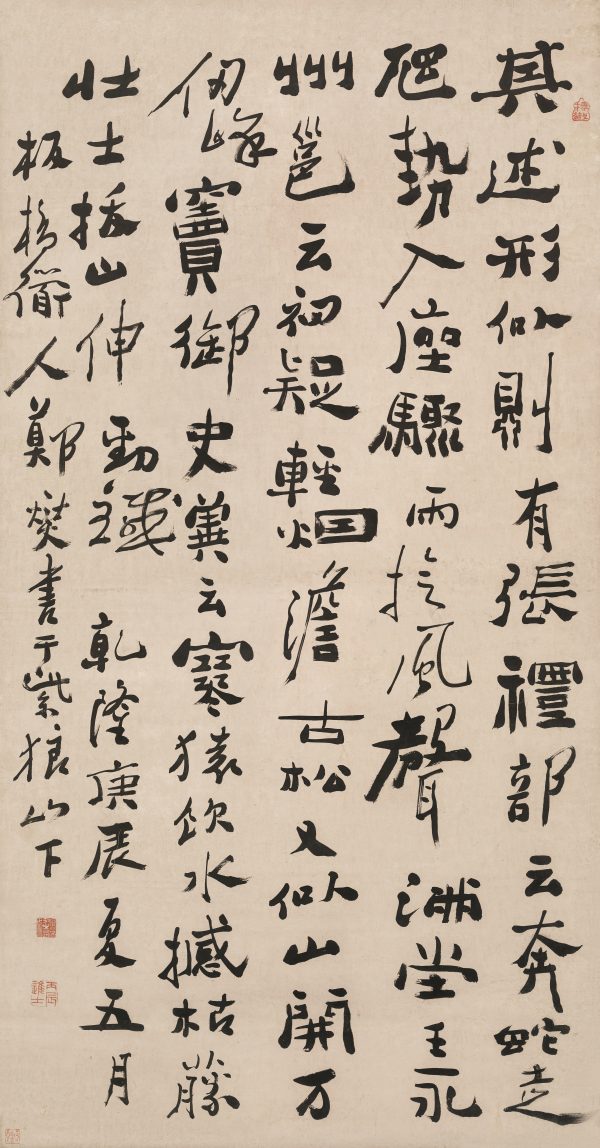 其述形似則有張禮部云奔蛇走
虺勢入座驟雨旋風聲滿堂王永
州邕云初疑輕烟澹古松又似山開万
仞峰竇御史冀云寒猿飲水撼枯藤
壯士拔山伸勁鐵 乾隆庚辰夏五月
板橋衜人鄭燮書于紫狼山下
丙辰進士